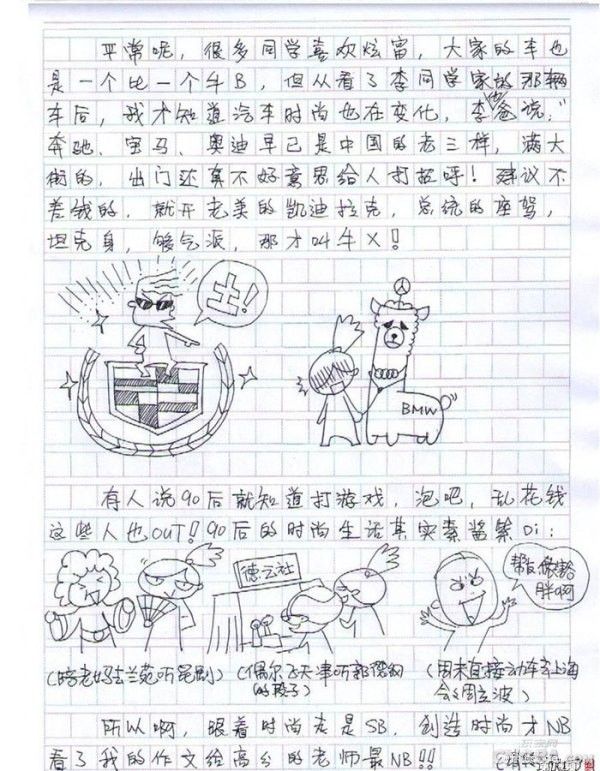 平常呢，很多同学喜欢炫富，大家的车也
是一个比一个牛B，但从看了李同学家的那辆
车后，我才知道汽车时尚也在变化，李他爸说，"
奔驰、宝马、奥迪早已是中国的老三样，满大
街的，出门还真不好意思给人打招呼！建议不
差钱的，就开老美的凯迪拉克，总统的座驾，
坦克身，够气派，那才叫牛X！
土！
BMW
有人说90后就知道打游戏，泡吧，乱花钱
这些人也OUT！90后的时尚生活其实素酱紫Di：
德云社
(陪老妈去兰苑听昆剧)
(偶尔飞天津听郭德纲
的段子)
(周末直接动车去上海
会会周立波)
所以啊，跟着时尚走是SB，创造时尚才NB
看了我的作文给高分的老师最NB！！